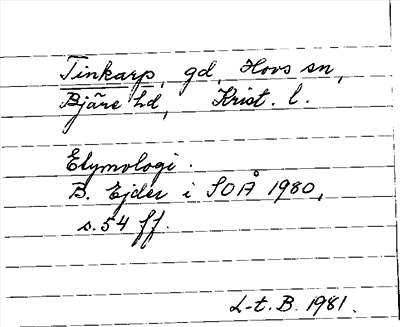 Tinkarp, gd, Hovs sn,
Bjäre hd, Krist. l.
Etymologi.
B. Ejder i SOÅ 1980,
s. 54 ff.
L-t. B. 1981.